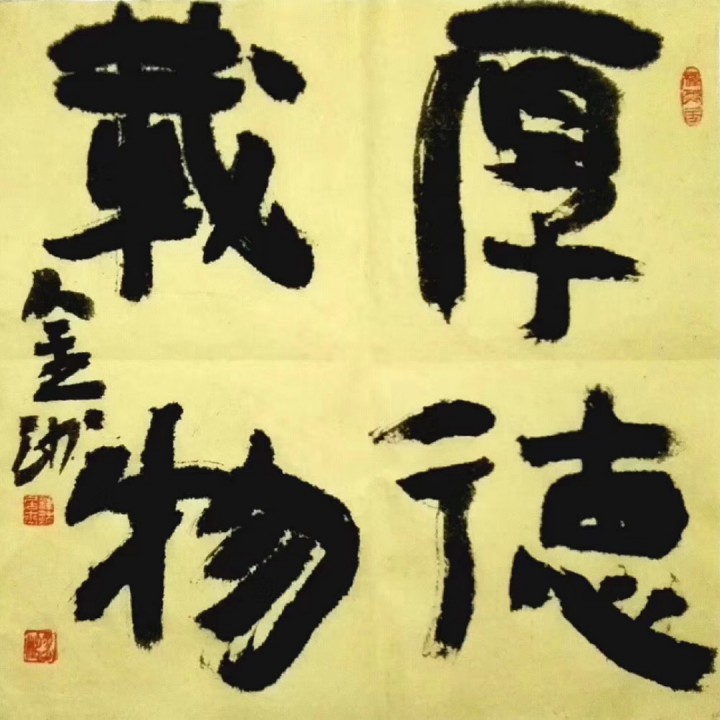 厚德
載物
金洲